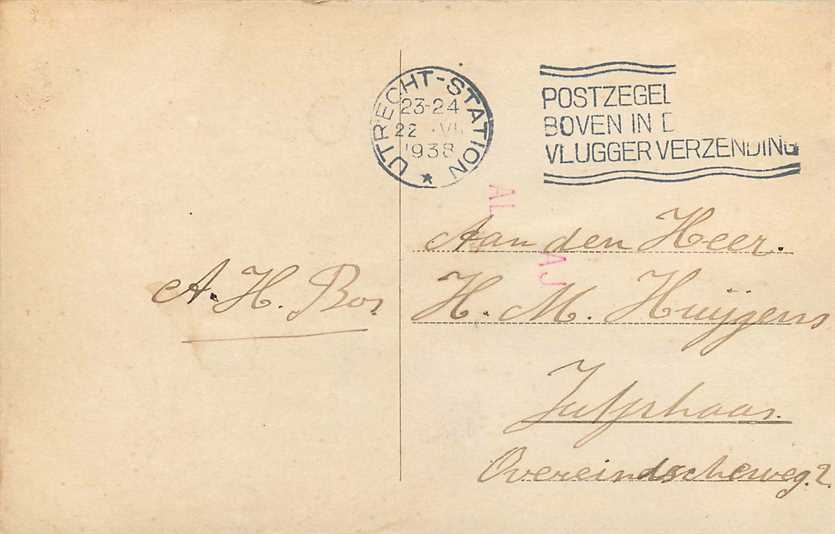 UTRECHT-STATION
23-24
22 VII
1938
POSTZEGEL
BOVEN IN D
VLUGGER VERZENDING
AL
AJ
Aan den Heer.
A. H. Bos
H. M. Huijgens
Jutphaas.
Overeindscheweg. 2.